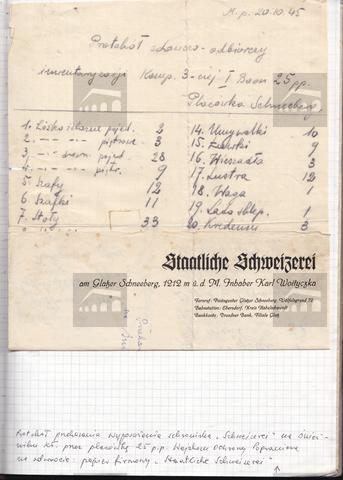 M.p. 20.10.45
Protokół zdawczo-odbiorczy
inwentaryzacji Komp. 3-ciej I Baon 25 pp.
Placówka Schneeberg
1. Łóżko żelazne pojed. 2
2. — " — — " — piętrowe 3
3. — " — drewn. pojed. 28
4. — " — — " — piętr. 9
5. Szafy 12
6. Szafki 11
7. Stoły 33
14. Umywalki 10
15. Zlewki 9
16. Wieszadła 3
17. Lustra 12
18. Waga 1
19. Lada sklep. 1
20. Kredensy 3
Staatliche Schweizerei
am Glatzer Schneeberg, 1212 m ü. d. M. Inhaber Karl Woityczka
Fernruf: Postagentur Glatzer Schneeberg, Wölfelsgrund 72
Bahnstation: Ebersdorf, Kreis Habelschwerdt
Bankkonto: Dresdner Bank, Filiale Glatz
Protokół przekazania wyposażenia schroniska "Schweizerei" na Śnież-
niku Kł. przez placówkę 25 p.p. Wojskom Ochrony Pogranicza
na odwrocie: papier firmowy "Staatliche Schweizerei"